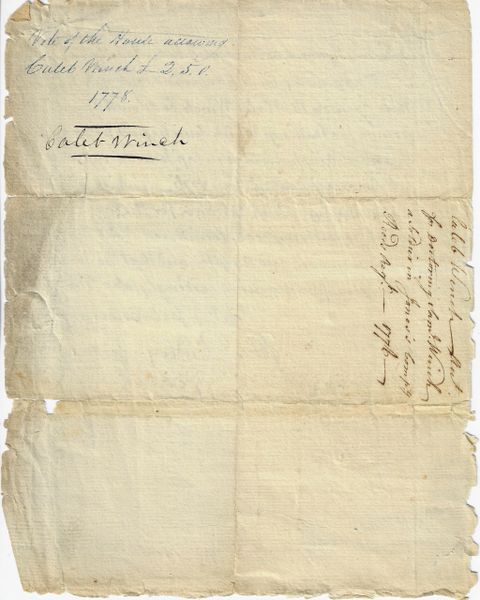 Vote of the House allowing
Caleb Winch £ 2, 5, 0.
1778.
Caleb Winch
Caleb Winch
for Doctoring Saml Winch
a Soldier in Jones's Compy
Reeds Regt — 1776